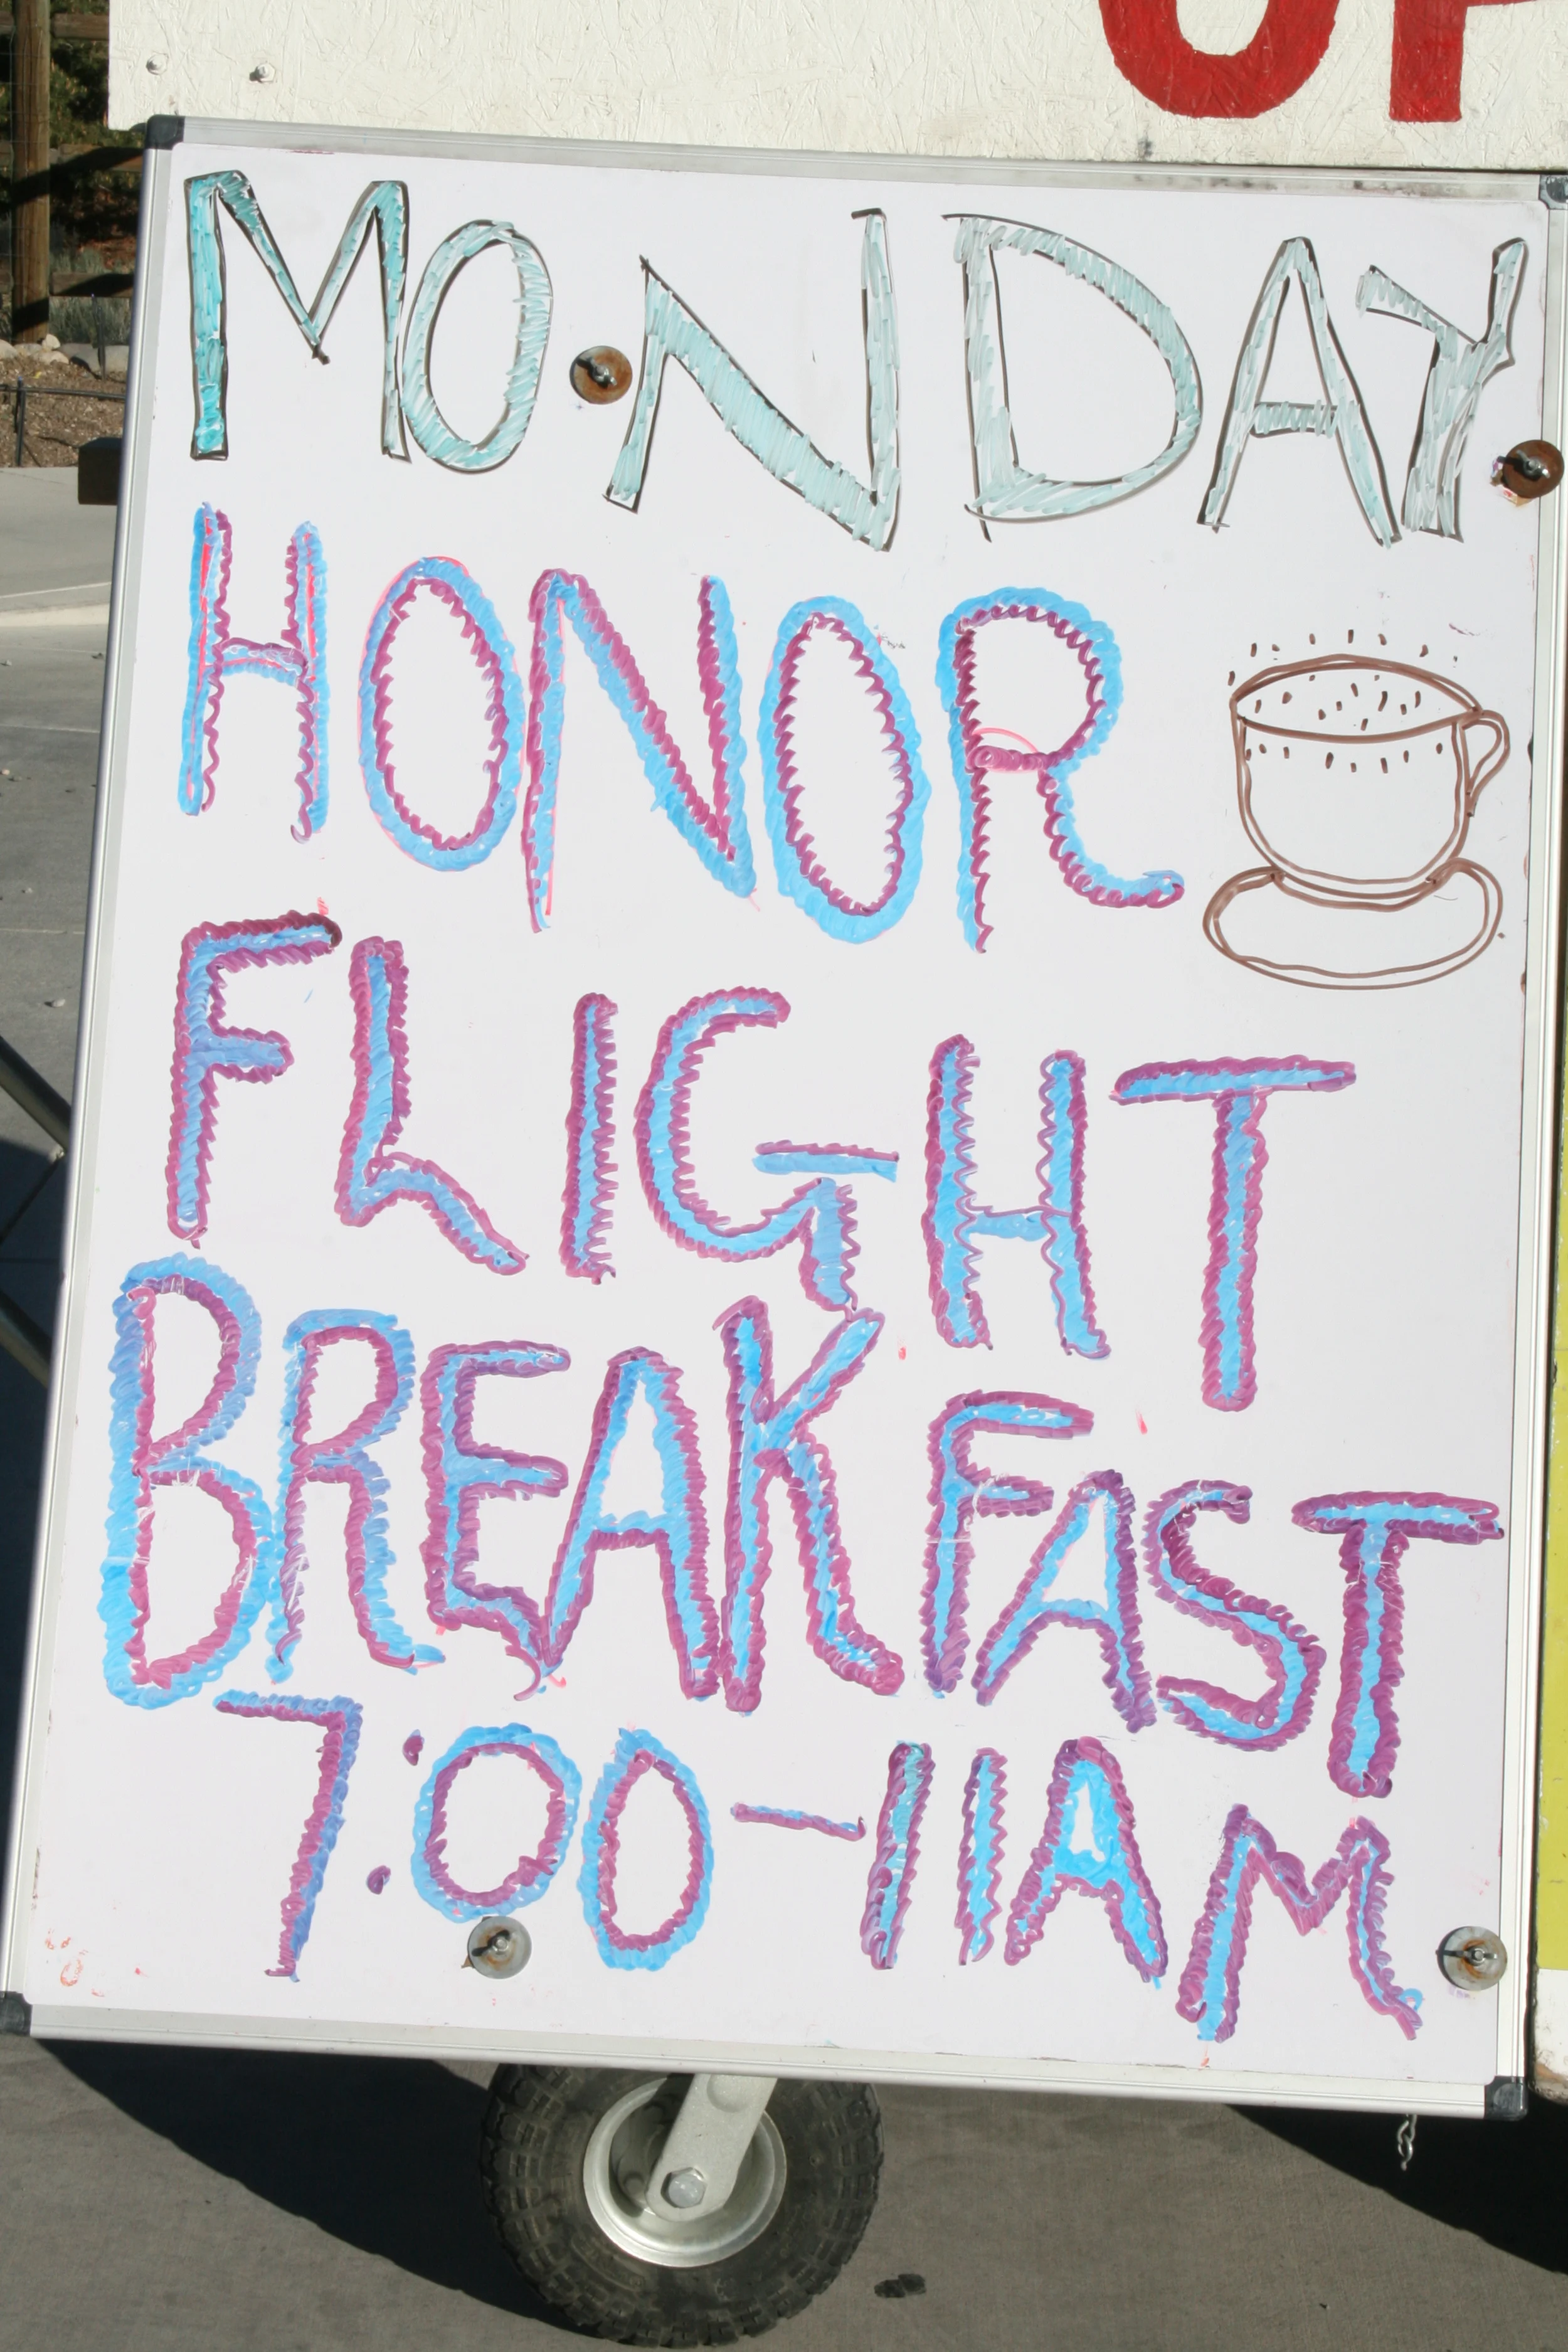 MONDAY
HONOR
FLIGHT
BREAKFAST
7:00-11AM